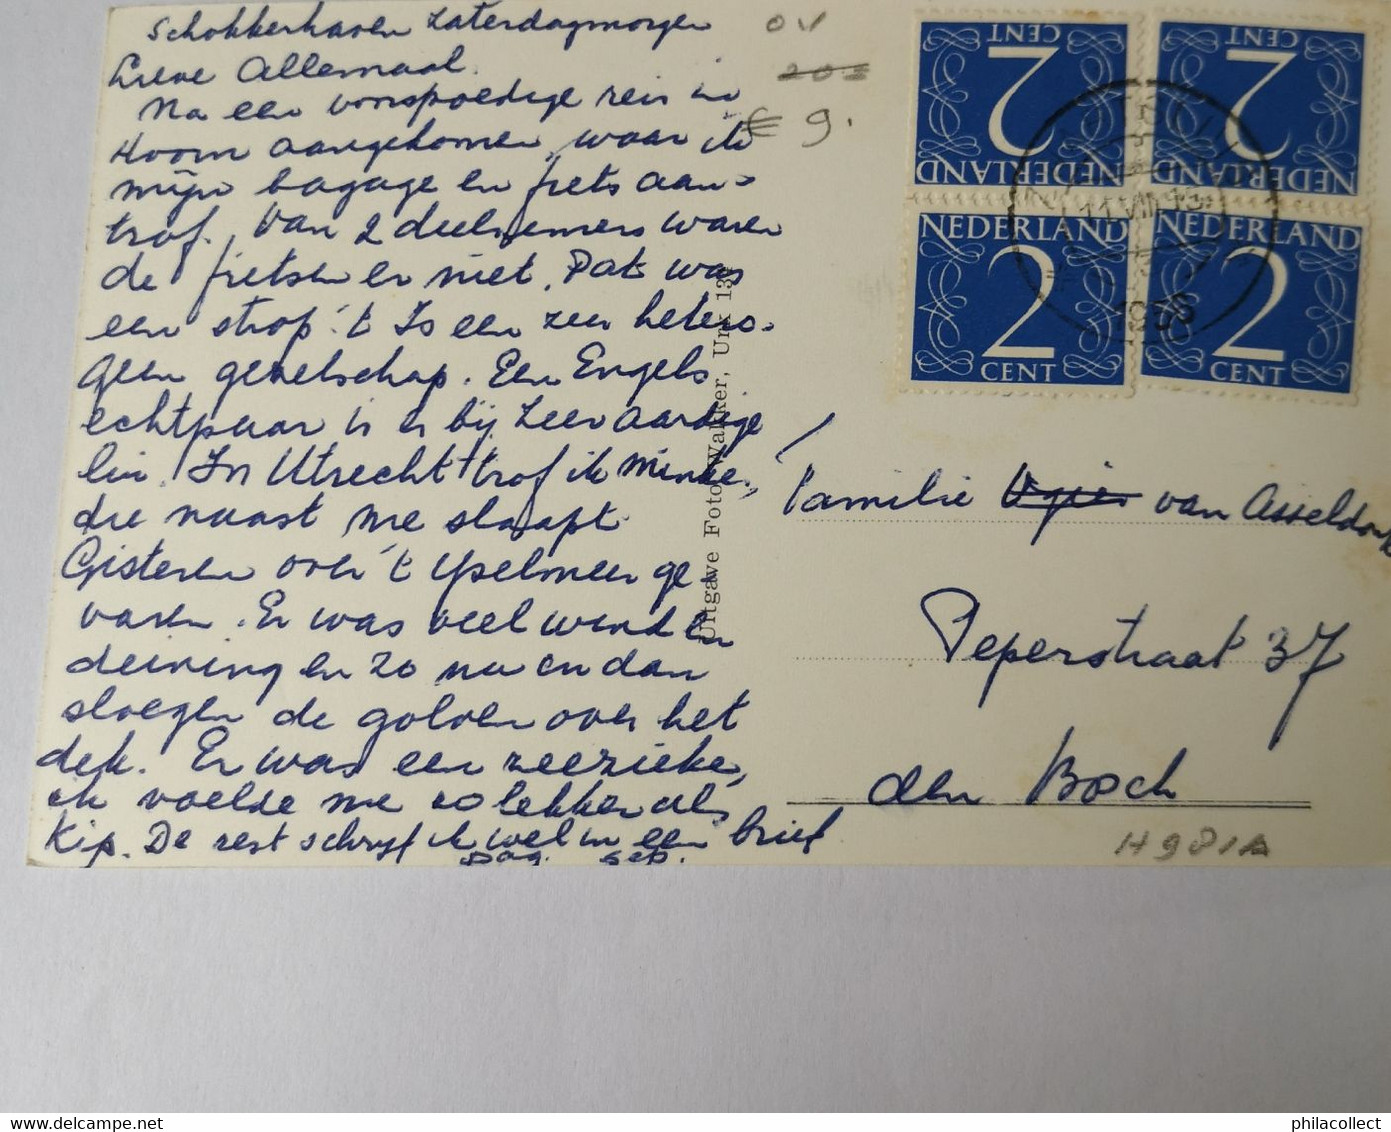 Schokkerhaven Zaterdagmorgen
Lieve Allemaal.
Na een voorspoedige reis in
Hoorn aangekomen, waar ik
mijn bagage en fiets aan-
trof. Van 2 deelnemers waren
de fietsen er niet. Dat was
een strop! 't Is een zeer hetero-
geen gezelschap. Een Engels
echtpaar is er bij. Zeer aardige
lui. In Utrecht trof ik Minke,
die naast me slaapt.
Gisteren over 't Yselmeer ge-
varen. Er was veel wind en
deining en zo nu en dan
sloegen de golven over het
dek. Er was een zeezieke,
ik voelde me zo lekker als
Kip. De rest schrijf ik wel in een brief
Dag.
Uitgave Foto Walker, Urk 13
€ 9.
NEDERLAND
2
CENT
NEDERLAND
2
CENT
NEDERLAND
2
CENT
NEDERLAND
2
CENT
Familie van Asseldonk
Peperstraat 37
den Bosch
H981A
philacollect